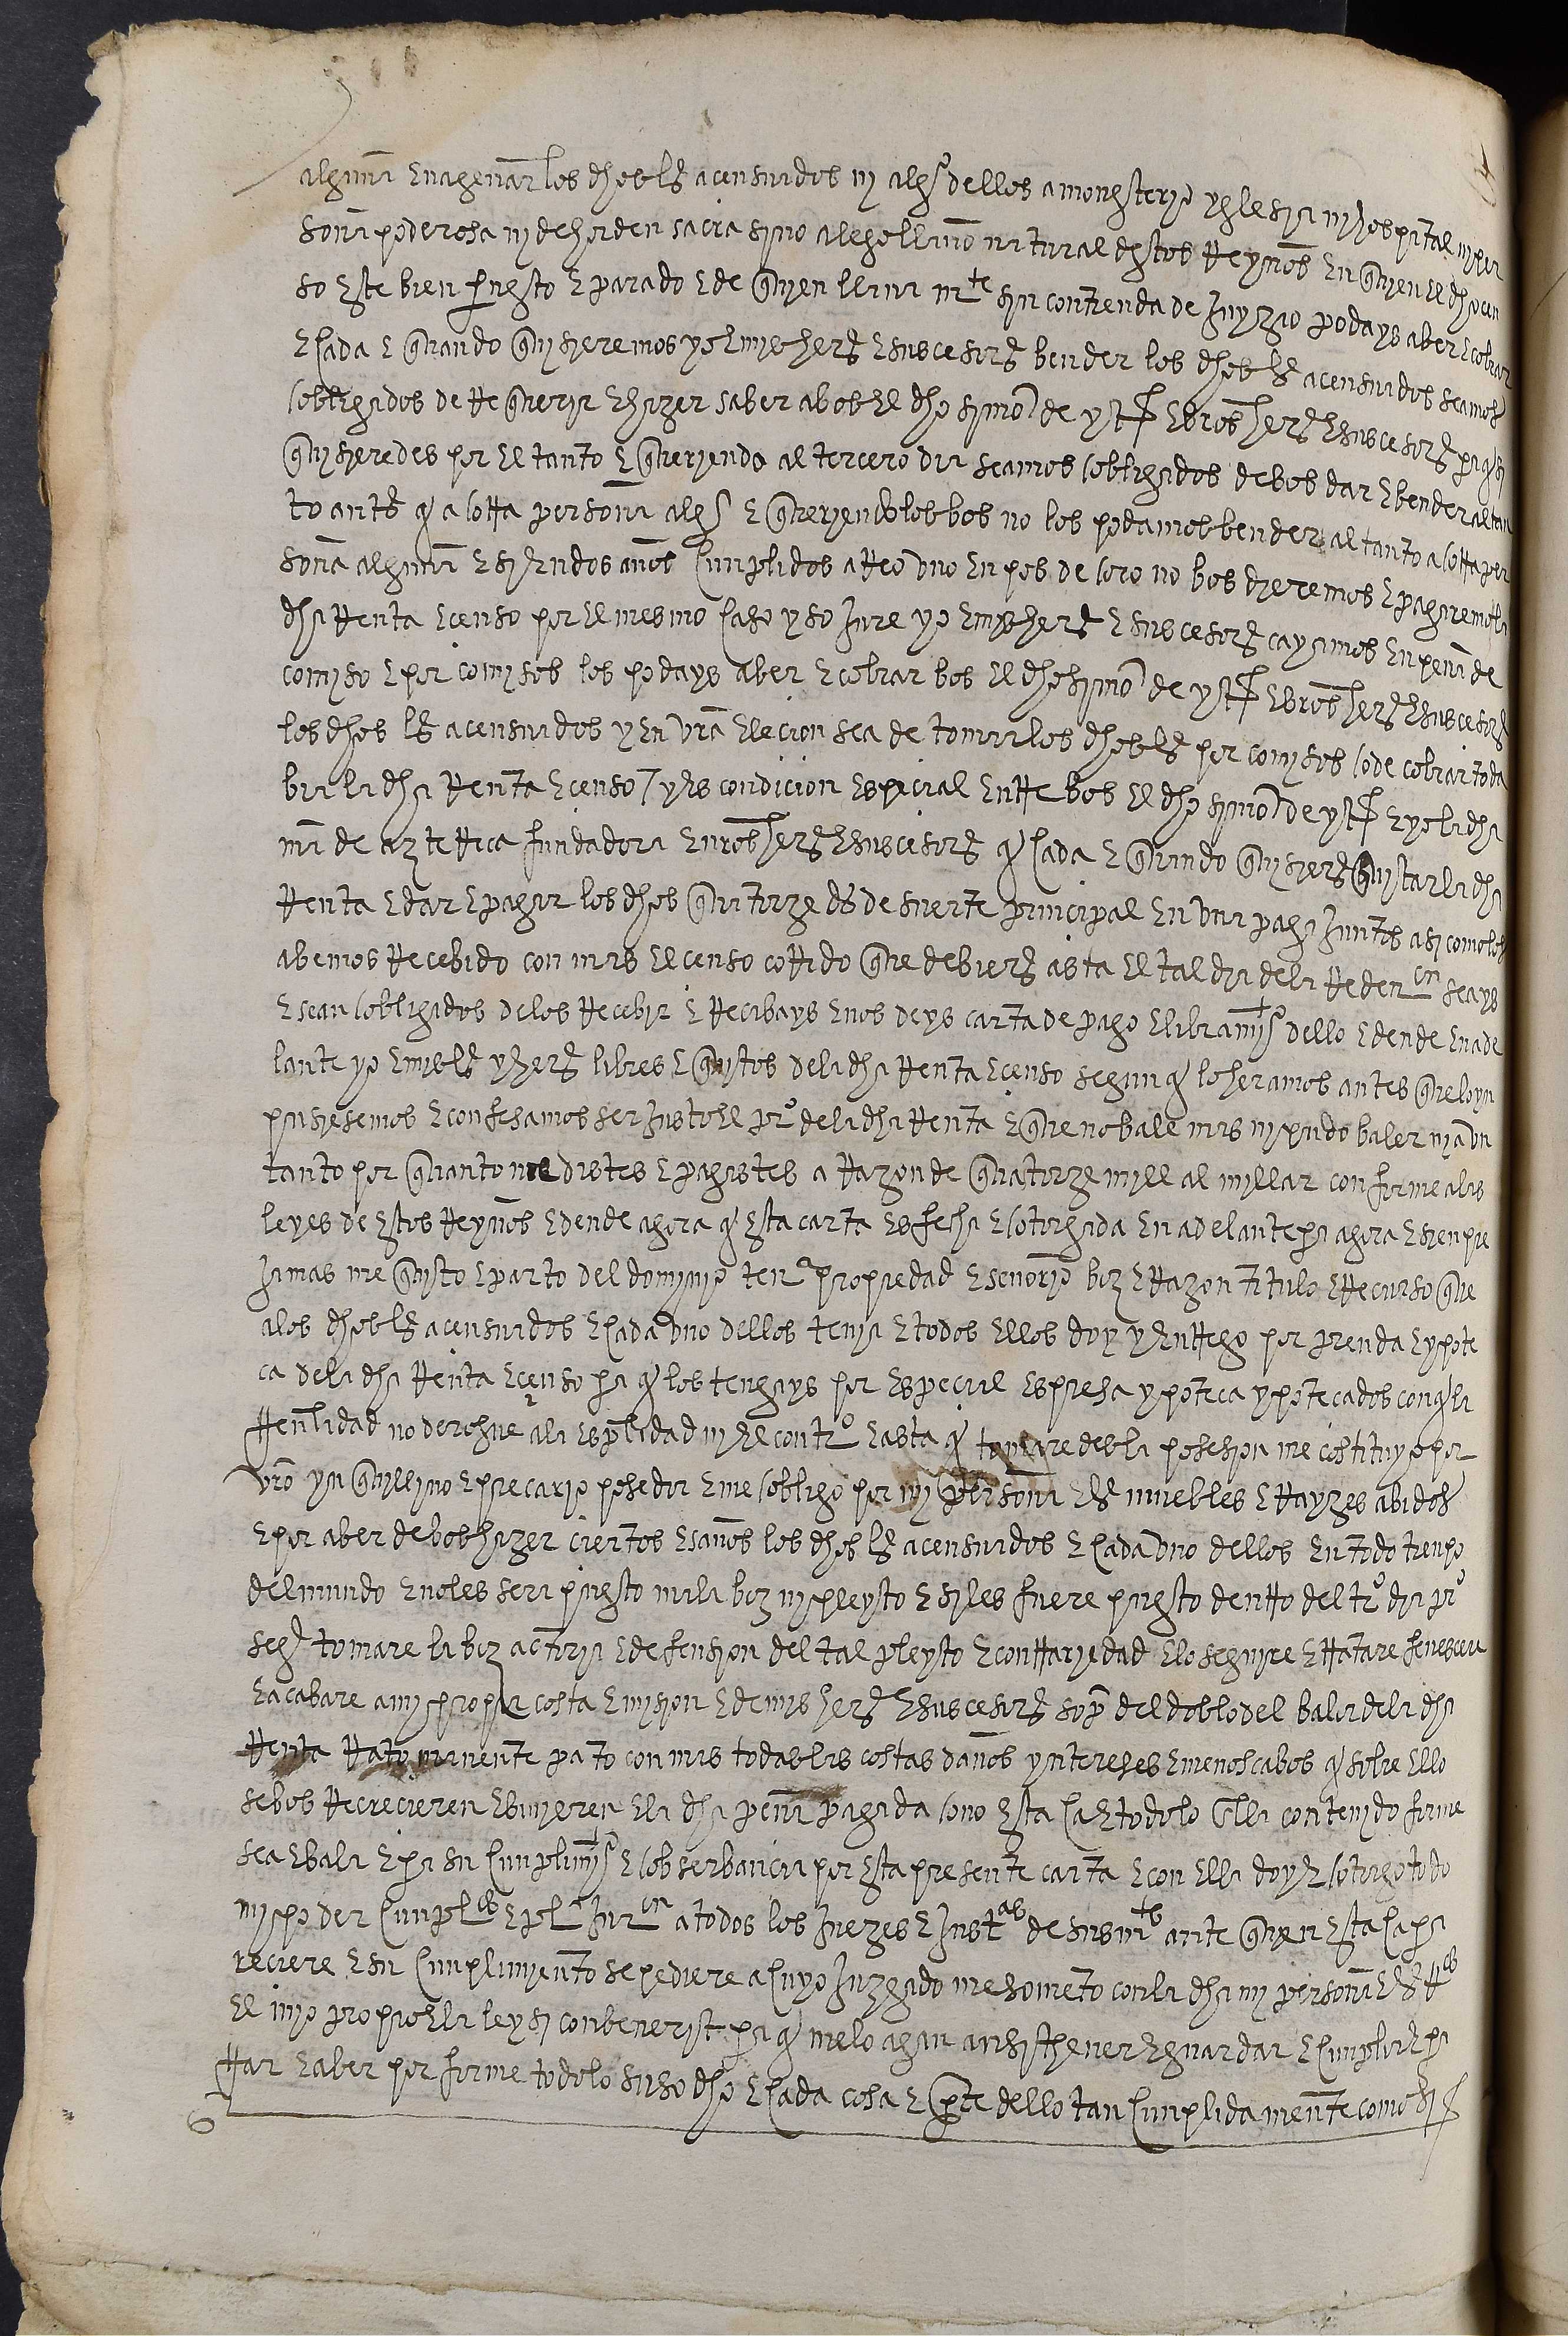 alguna enagenar los dhos bs acensuados ni algo dellos a monesterio yglesia ni hospital ni per
sona poderosa ni de horden sacra sino a lego llano natural destos rreynos en quien el dho cen
so este bien puesto e parado e de quien llana mte sin contienda de juyzio podays aber e cobrar
e cada e quando quisieremos yo e mis hers e suscesores bender los dhos bs acensuados seamos
obligados de rrequerir e hazer saber a bos el dho simon de e vros hers e suscesores pa q si
quisieredes por el tanto e queriendo al tercero dia seamos obligados de bos dar e bender al tan
to antes q a otra persona alga e queriendolos bos no los podamos bender al tanto a otra per
sona alguna e si en dos años cunplidos arreo uno en pos de otro no bos dieremos e pagaremos la
dha rrenta e censo por el mesmo caso yso jure yo e mis hers e suscesores cayamos en pena de
comiso e por comisos los podays aber e cobrar bos el dho simon de e vros hers e suscesores
los dhos bs acensuados y en vra elecion sea de tomar los dhos bs por comisos o de cobrar toda
bia la dha rrenta e censo / y es condicion especial entre bos el dho simon de e yo la dha
ma de fundadora e nros hers e suscesores q cada e quando quisieres quitar la dha
rrenta e dar e pagar los dhos quatorze ds de suerte principal en una paga juntos asi como los
abemos rrecebido con mas el censo corrido que debieres asta el tal dia de la rredencn seays
e sean obligados de los rrecebir e rrecibays e nos deys carta de pago e libramito dello e dende en ade
lante yo e mis bs y hers libres e quitos de la dha rrenta e censo segun q lo heramos antes que lo yn
pusiesemos e confesamos ser justo el pro de la dha rrenta e que no bale mas ni pudo baler ni a un
tanto por quanto me distes e pagastes a rrazon de quatorze mill al millar conforme a las
leyes de estos rreynos e dende agora q esta carta es fecha e otorgada en adelante pa agora e sienpre
jamas me quito e parto del dominio tena propiedad e senorio boz e rrazon titulo e rrecurso que
a los dhos bs acensuados e cada uno dellos tenia e todos ellos doy y entrego por prenda e ypote
ca de la dha rrenta e censo pa q los tengays por especial espresa ypoteca ypotecados con q la
genlidad no derogue a la esplidad ni el contro e asta q tomaredes la posesion me costituyo por
vro ynquillino e precario posedor e me obligo por mi persona e bs muebles e rrayzes abidos
e por aber de bos hazer ciertos e sanos los dhos bs acensuados e cada uno dellos en todo tienpo
del mundo e no les sera puesto mala boz ni pleyto e si les fuere puesto dentro del tro dia pro
sego tomare la boz actoria e defension del tal pleyto e contrariedad e lo seguire e tratare fenescere
e acabare a mi propia costa e mision e de mis hers e suscesores so pa del doblo del balor de la dha
rrenta rrato manente pato con mas todas las costas daños yntereses e menoscabos q sobre ello
se bos rrecrecieren e binieren e la dha pena pagada o no esta ca e todo lo en ella contenido firme
sea e bala e pa su cunplimito e obserbancia por esta presente carta e con ella doy e otorgo todo
mi poder cunplo e plo jurcn a todos los juezes e justas de sus mtas ante quien esta ca pa
reciere e su cunplimiento se pediere a cuyo juzgado me someto con la dha mi persona e bs rro
el mio propio e la ley si conbenerist pa q me lo agan ansi thener e guardar e cunplir e pa
gar e aber por firme todo lo suso dho e cada cosa e parte dello tan cunplidamente como si